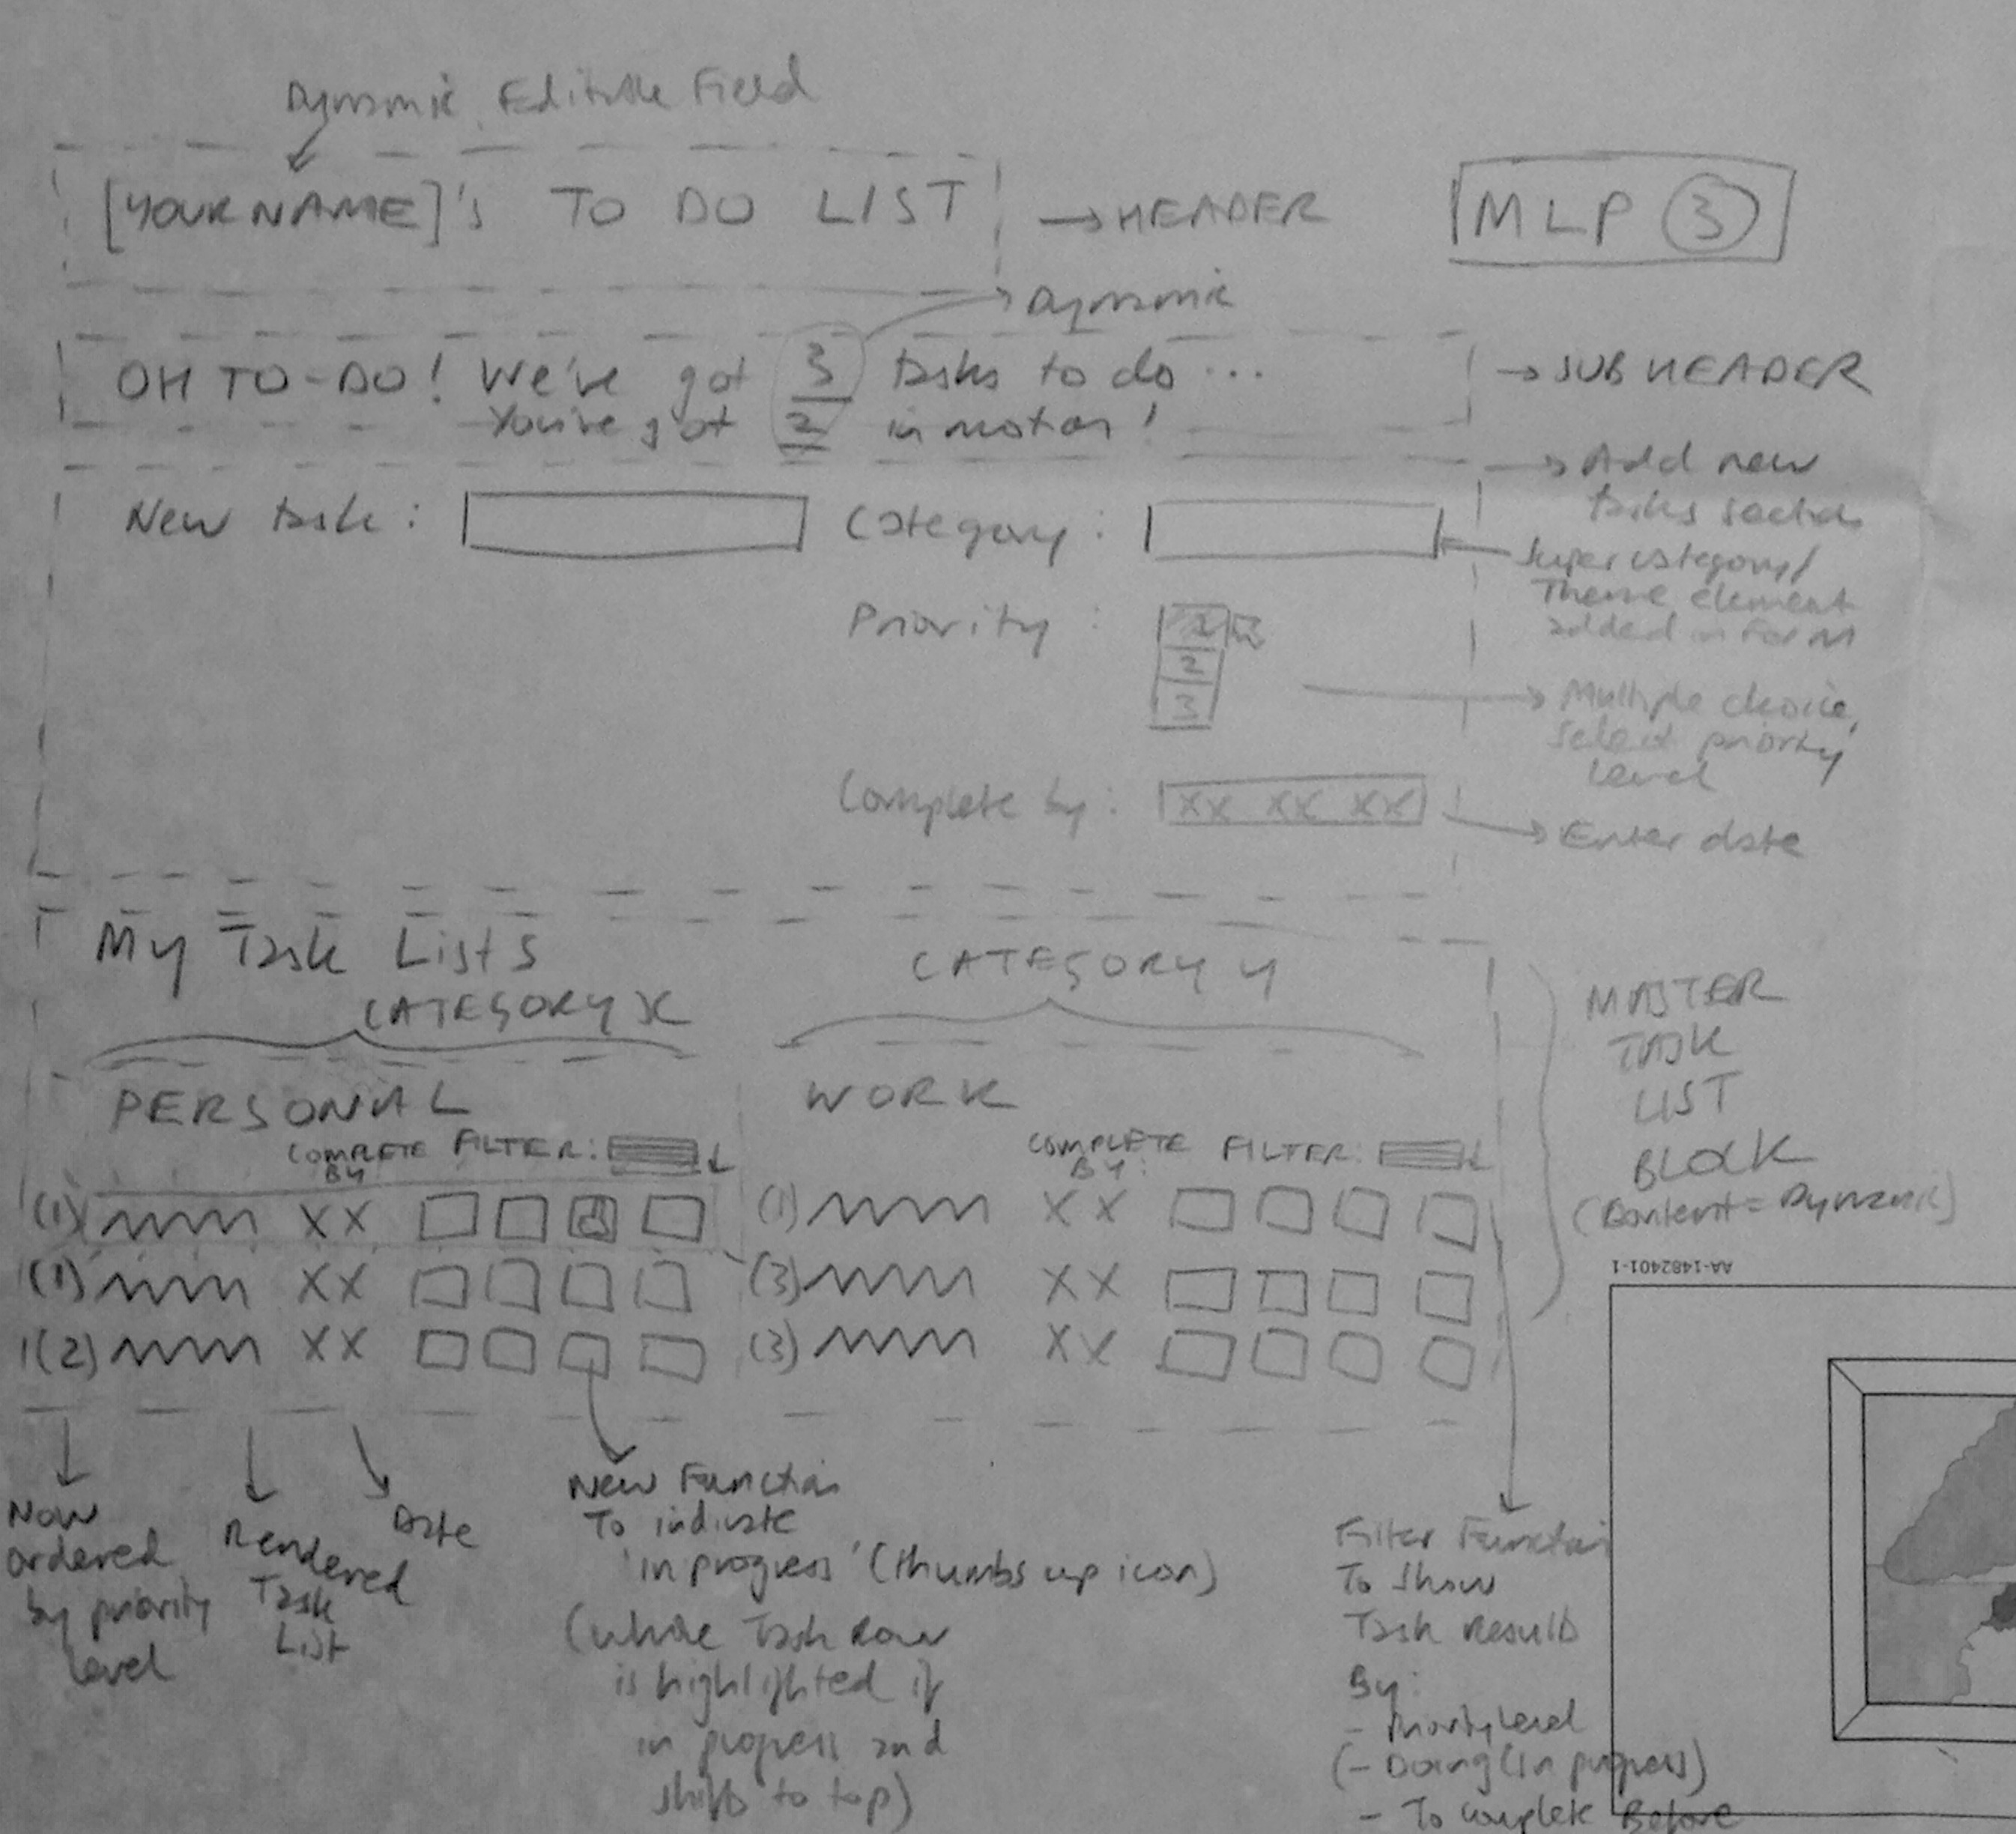 Dynamic Editable Field
[YOUR NAME]'s TO DO LIST
→ HEADER
MLP 3
Dynamic
OH TO-DO! We've got 3 tasks to do...
You've got 2 in motion!
→ SUBHEADER
→ Add new
tasks section
New task:
Category:
Super category/
Theme element
added in form
Priority:
2
3
→ Multiple choice,
select priority
level
Complete by: XX XX XX
→ Enter date
My Task Lists
CATEGORY X
CATEGORY Y
MASTER
TASK
LIST
BLOCK
(Content = Dynamic)
PERSONAL
WORK
COMPLETE BY: FILTER:
COMPLETE BY: FILTER:
(1) XX
(1) XX
(1) XX
(3) XX
(2) XX
(3) XX
AA-1482401-1
Now
ordered
by priority
level
Rendered
Task
List
Date
New Function
To indicate
'in progress' (thumbs up icon)
(whole Task Row
is highlighted if
in progress and
shifts to top)
Filter Function
To show
Task Results
By:
- Priority Level
(- Doing (in progress)
- To complete Before